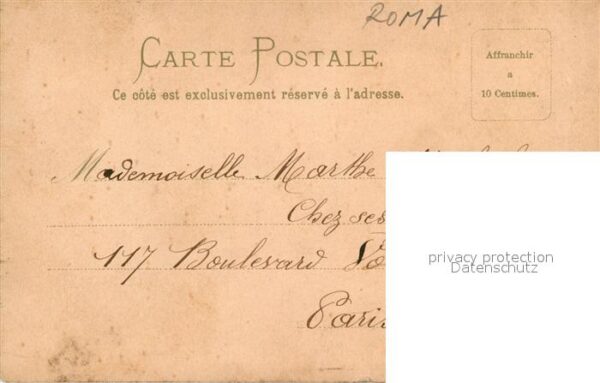 ROMA
CARTE POSTALE.
Affranchir
a
10 Centimes.
Ce côté est exclusivement réservé à l'adresse.
Mademoiselle Marthe
Chez ses
117 Boulevard
Paris
privacy protection
Datenschutz